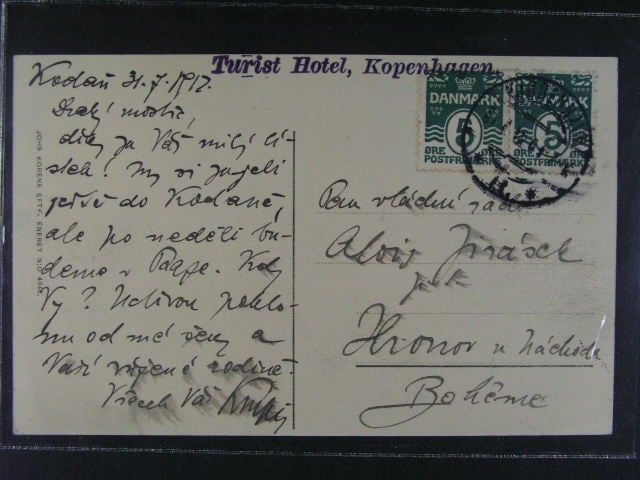 Turist Hotel, Kopenhagen.
Kodaň 31.7.1912.
Drahý mistře,
díky za Váš milý lí-
stek! My si zajeli
ještě do Kodaně,
ale po neděli bu-
deme v Praze. Kdy
Vy? Uctivou poklo-
nu od mé ženy a
Vaší vzácné rodině.
Všech Váš
JOHS. KORENS EFTF. ENERET.
DANMARK
5
ØRE
POSTFRIMÆRK
DANMARK
5
ØRE
POSTFRIMÆRK
Pan vládní rada
Alois Jirásek
Hronov u Náchoda
Bohême